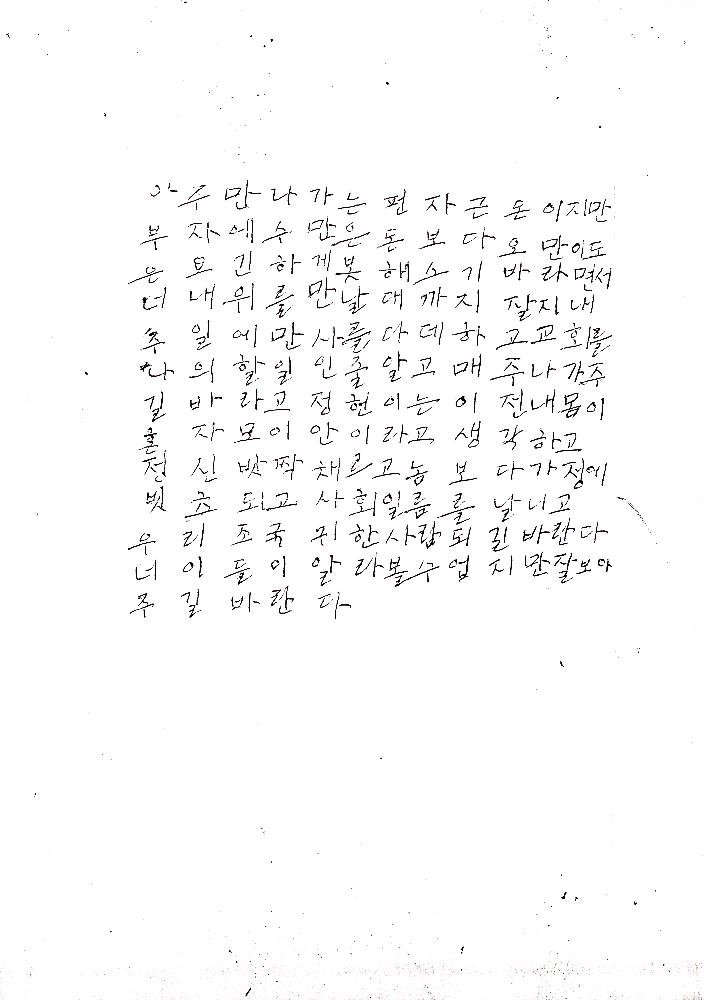 아주만나가는편자근돈이지만
부자에수만은돈보다오만이도
은토긴하게못해스기바라면서
너내위를만날대까지잘지내
주일에만사를다데하고교회를
나의할일인줄알고매주나가주
길바라고정현이는이전내몸이
혼자모이안이라고생각하고
전신밧짝채르고농보다가정에
빗츠되고사회일름를날니고
우리조국귀한사람되길바란다
너이들이알라볼수업지만잘보아
주길바란다